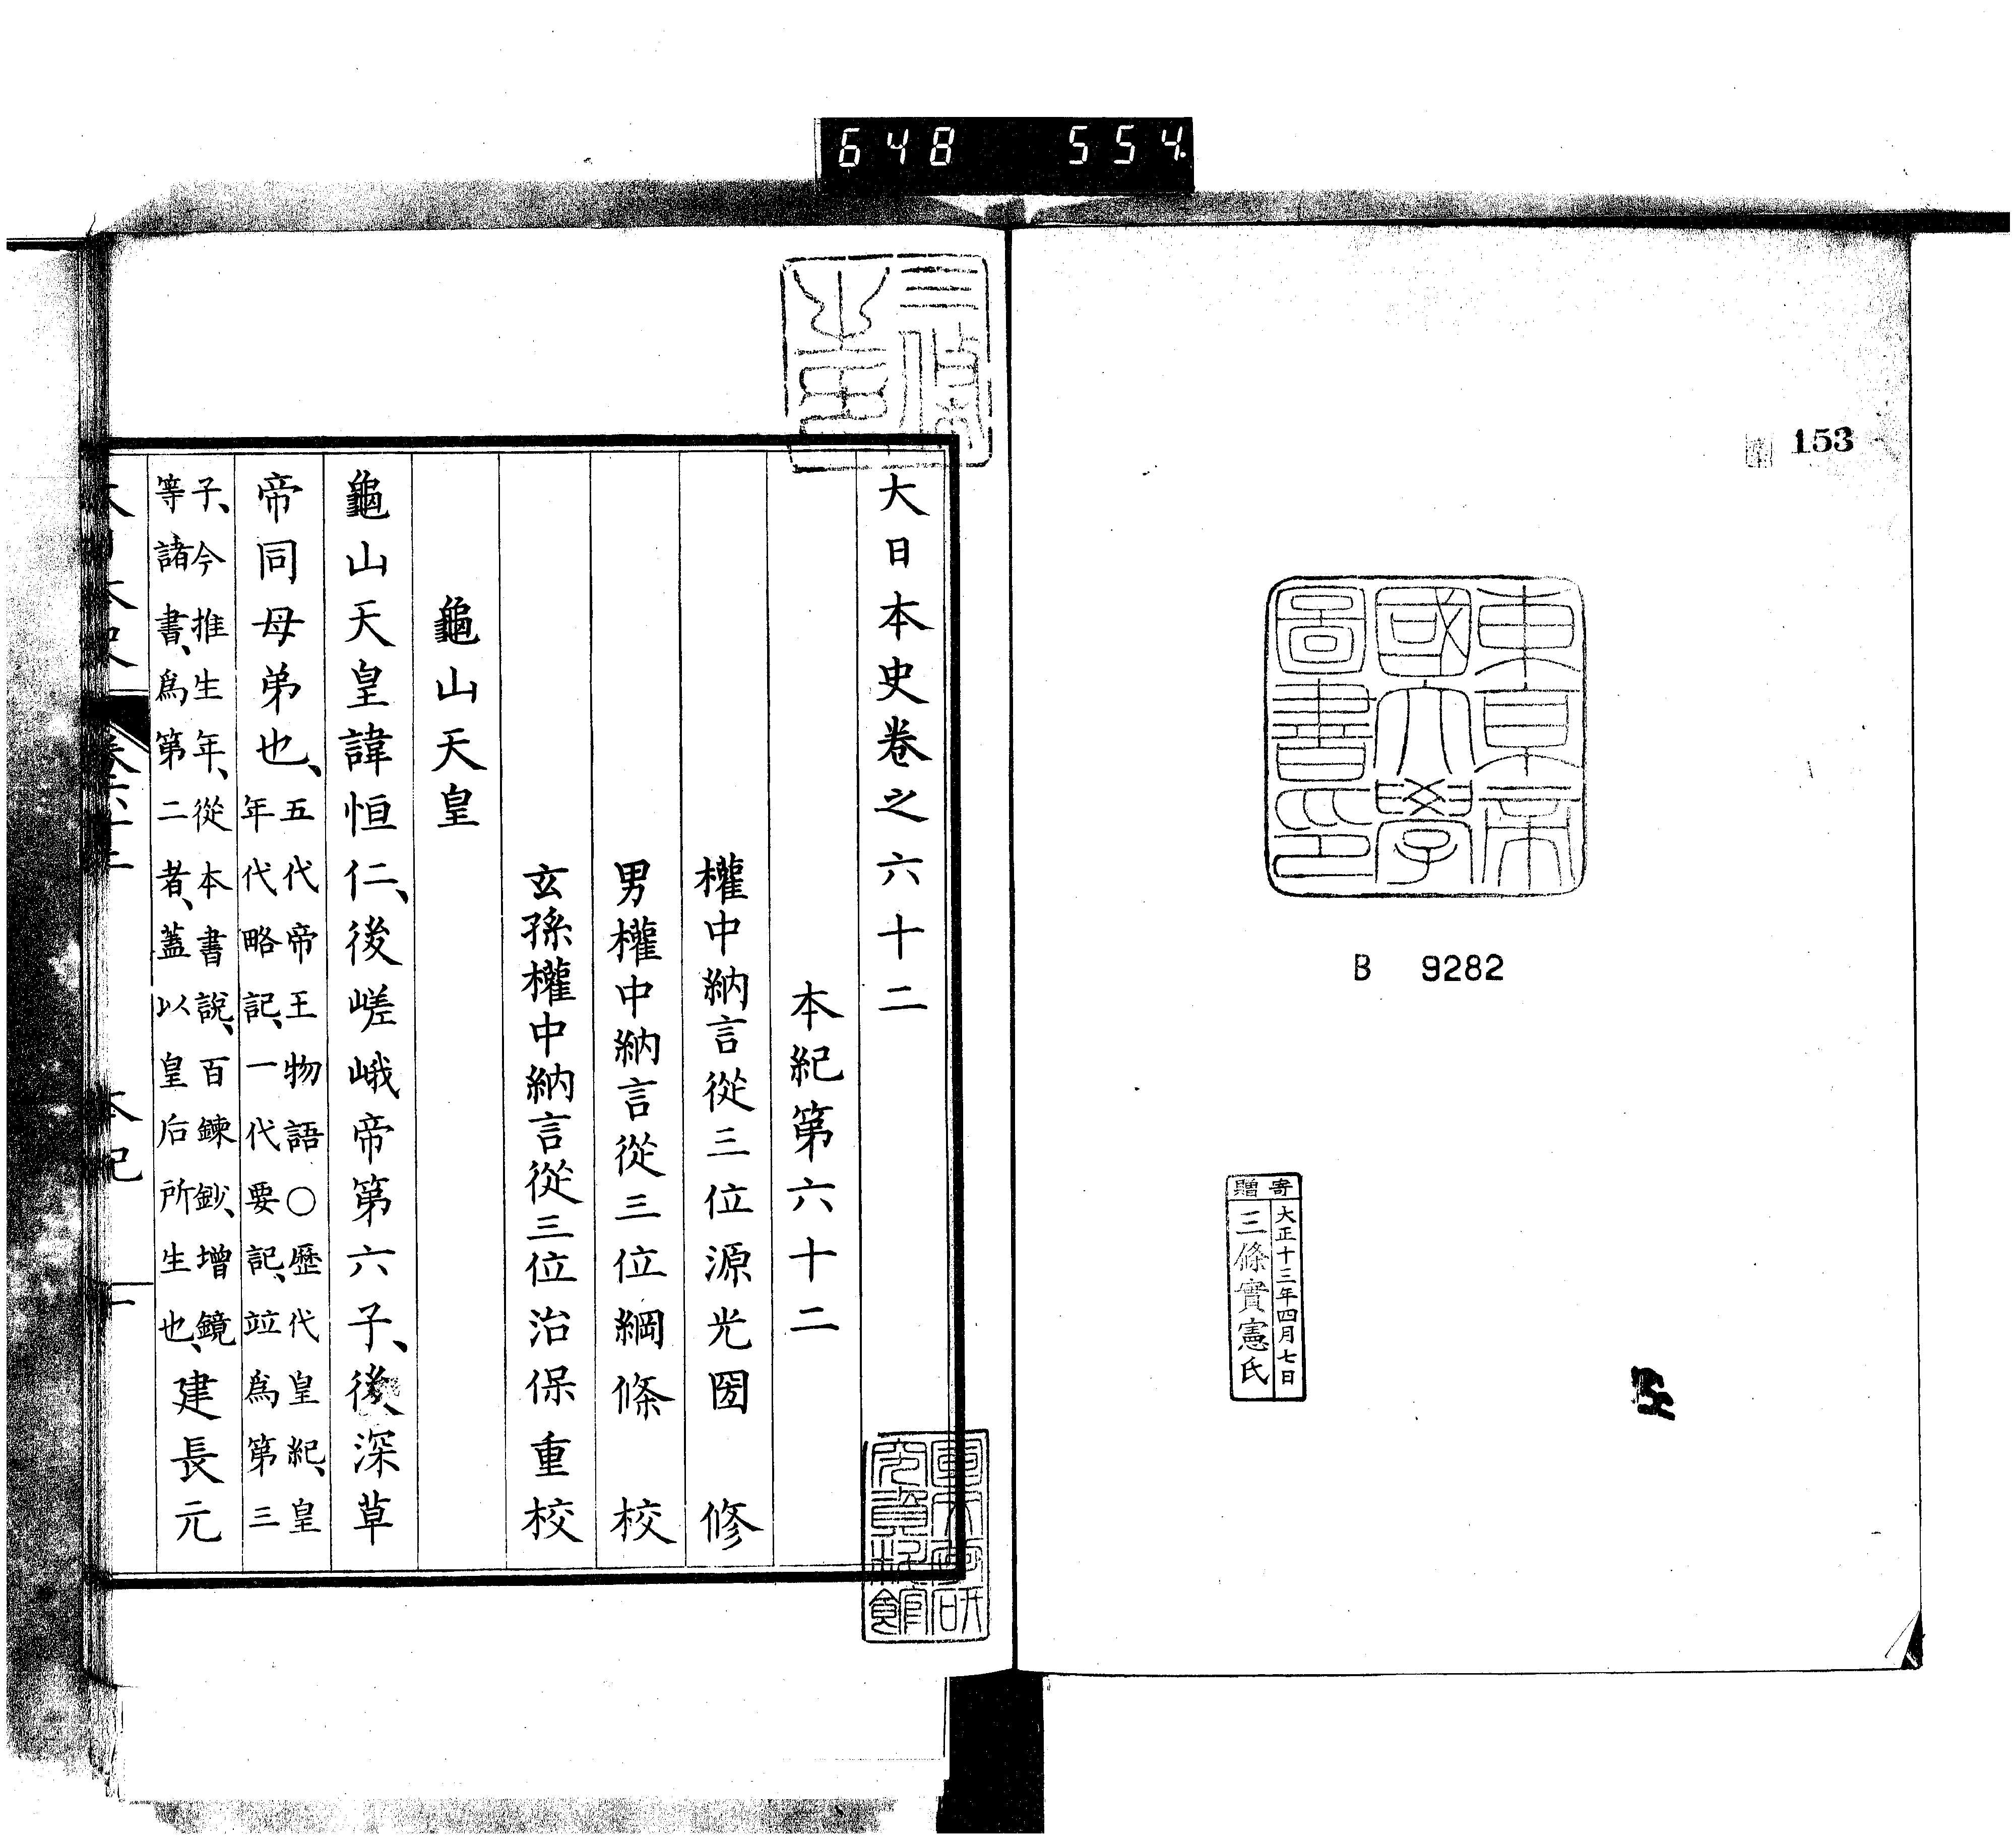 648 554
153
東京帝
國大學
圖書印
B 9282
寄贈
大正十三年四月七日
三條實憲氏
大日本史卷之六十二
本紀第六十二
權中納言從三位源光圀 修
男權中納言從三位綱條 校
玄孫權中納言從三位治保重校
龜山天皇
龜山天皇諱恒仁、後嵯峨帝第六子、後深草
帝同母弟也、五代帝王物語○歷代皇紀、皇
年代略記、一代要記、竝爲第三
子、今推生年、從本書說、百鍊鈔、增鏡
等諸書、爲第二者、蓋以皇后所生也、建長元